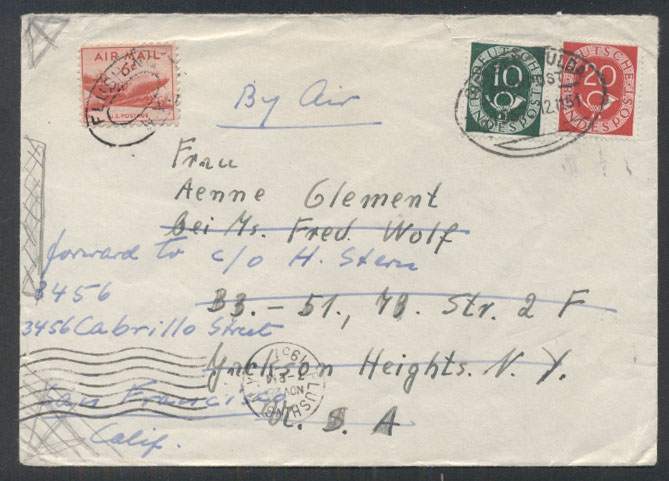 AIR MAIL
6¢
U.S. POSTAGE
DEUTSCHE
10
BUNDESPOST
DEUTSCHE
20
BUNDESPOST
By Air
Frau
Aenne Clement
bei Ms. Fred Wolf
forward to c/o H. Stern
3456
33.-51., 78. Str. 2 F
3456 Cabrillo Street
Jackson Heights. N. Y.
FLUSHING
NOV
1951
San Francisco
U. S. A
Calif.